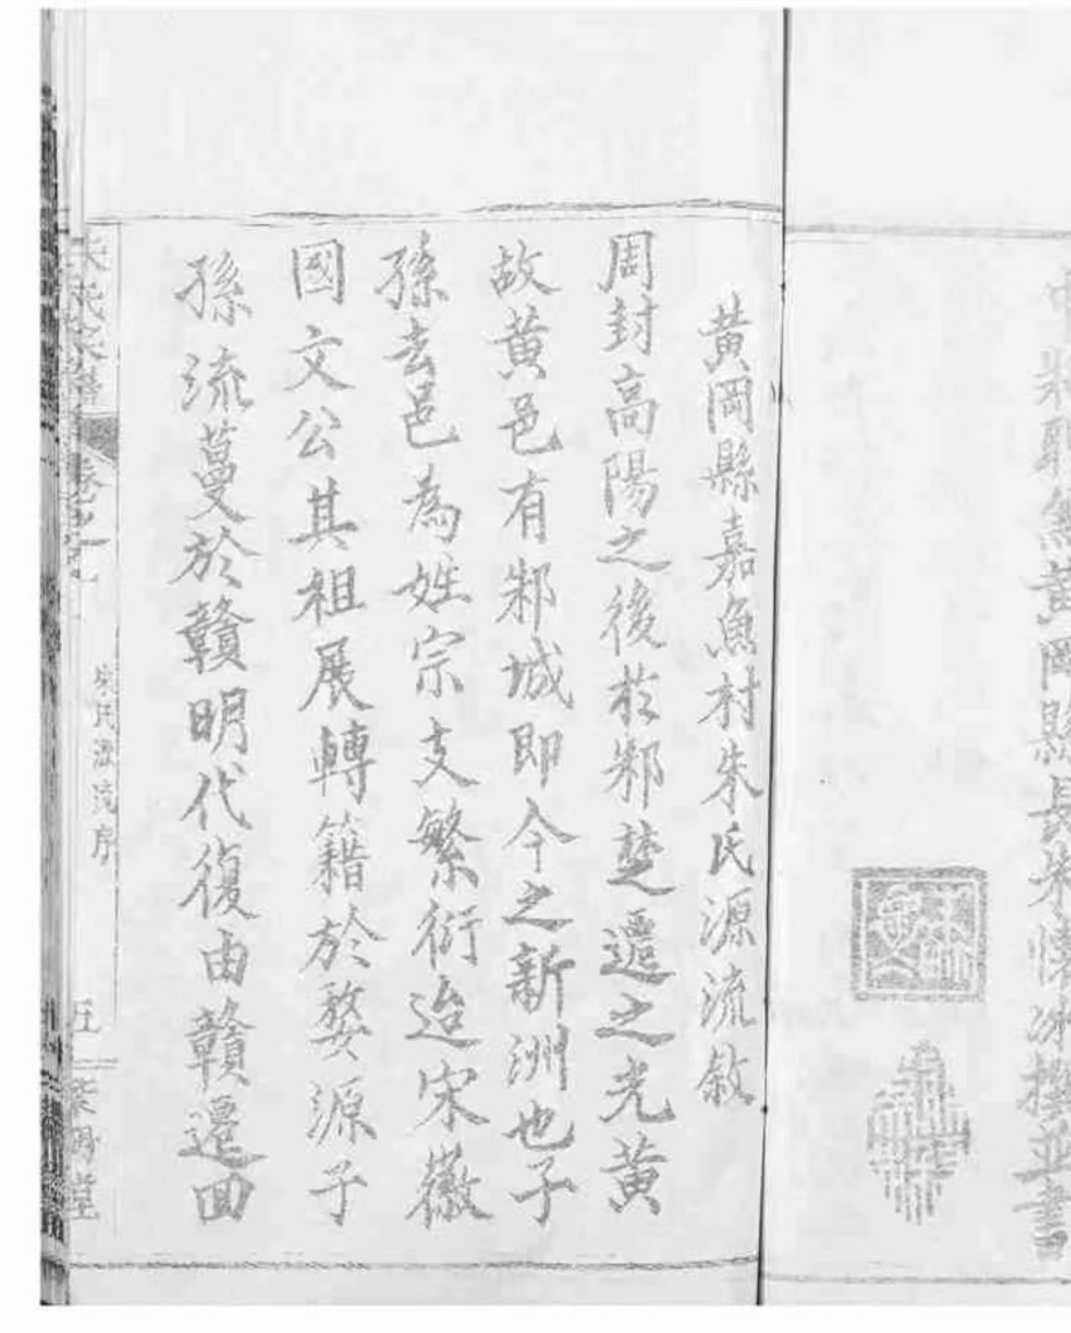 中將職兼黃岡縣長朱懷冰撰並書
黃岡縣嘉魚村朱氏源流敘
周封高陽之後於邾邾楚遷之光黃
故黃邑有邾城即今之新洲也子
孫去邑為姓宗支繁衍迨宋徽
國文公其祖展轉籍於婺源子
孫流蔓於贛明代復由贛遷回
朱氏宗譜
卷之首
朱氏源流序